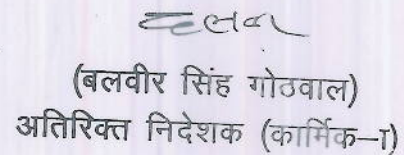 (बलवीर सिंह गोठवाल)
अतिरिक्त निदेशक (कार्मिक–I)